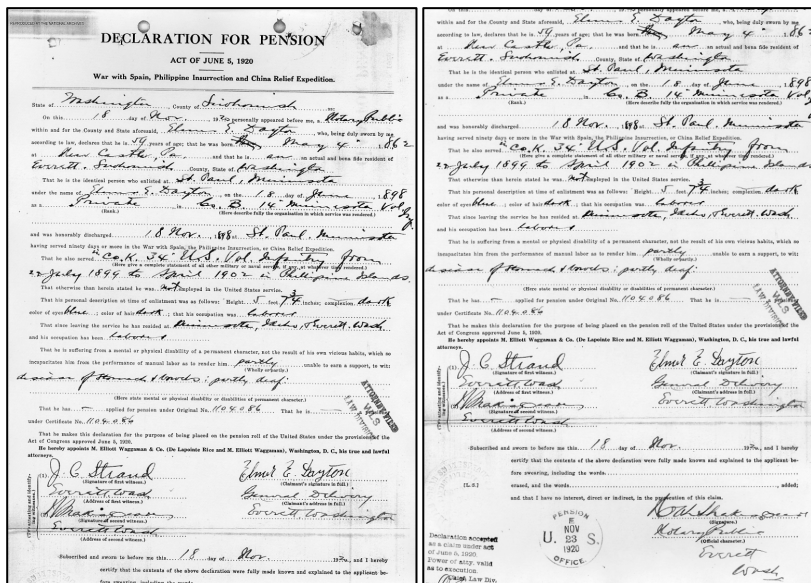 REPRODUCED AT THE NATIONAL ARCHIVES
DECLARATION FOR PENSION
ACT OF JUNE 5, 1920
War with Spain, Philippine Insurrection and China Relief Expedition.
State of Washington, County of Snohomish ss:
On this 18 day of Nov. 1920 personally appeared before me, a Notary Public
within and for the County and State aforesaid, Elmer E. Dayton who, being duly sworn by me
according to law, declares that he is 58 years of age; that he was born May 4" 1862
at New Castle, Pa. and that he is an actual and bona fide resident of
Everett, Snohomish County, State of Washington
That he is the identical person who enlisted at St. Paul, Minnisota
under the name of Elmer E. Dayton, on the 18 day of June, 1898
as a Private in Co. B. 14" Minnisota Vol.
(Rank.) (Here describe fully the organization in which service was rendered.)
and was honorably discharged 18 Nov. 1898 at St. Paul, Minnisota
having served ninety days or more in the War with Spain, the Philippine Insurrection or China Relief Expedition.
That he also served in Co. K. 34" U.S. Vol. Infantry from
(Here give a complete statement of all other military or naval service, if any, at whatever time rendered.)
22 July 1899 to April 1902 in Phillipine Islands.
That otherwise than herein stated he was not employed in the United States service.
That his personal description at time of enlistment was as follows: Height, 5 feet 7 3/4 inches; complexion dark
color of eyes blue; color of hair dark; that his occupation was laborer
That since leaving the service he has resided at Minnisota, Idaho, & Everett, Wash.
and his occupation has been laborer
That he is suffering from a mental or physical disability of a permanent character, not the result of his own vicious habits, which so
incapacitates him from the performance of manual labor as to render him partly unable to earn a support, to wit:
(Wholly or partly.)
disease of stomach & bowels; partly deaf.
(Here state mental or physical disability or disabilities of permanent character.)
That he has — applied for pension under Original No. 1104086 That he is
under Certificate No. 1104086
That he makes this declaration for the purpose of being placed on the pension roll of the United States under the provisions of the
Act of Congress approved June 5, 1920.
He hereby appoints M. Elliott Waggaman & Co. (De Lapointe Rice and M. Elliott Waggaman), Washington, D. C., his true and lawful
attorneys.
(1) J. C. Strand Elmer E. Dayton
(Signature of first witness.) (Claimant's signature in full.)
Everett Wash General Delivery
(Address of first witness.) (Claimant's address in full.)
Everett Washington
(Signature of second witness.)
Everett Wash
(Address of second witness.)
Subscribed and sworn to before me this 18 day of Nov. 1920, and I hereby
certify that the contents of the above declaration were fully made known and explained to the applicant be-
fore swearing, including the words
within and for the County and State aforesaid, Elmer E. Dayton who, being duly sworn by me
according to law, declares that he is 58 years of age; that he was born May 4" 1862
at New Castle, Pa. and that he is an actual and bona fide resident of
Everett, Snohomish County, State of Washington
That he is the identical person who enlisted at St. Paul, Minnisota
under the name of Elmer E. Dayton, on the 18 day of June, 1898
as a Private in Co. B. 14" Minnisota Vol.
(Rank.) (Here describe fully the organization in which service was rendered.)
and was honorably discharged 18 Nov. 1898 at St. Paul, Minnisota
having served ninety days or more in the War with Spain, the Philippine Insurrection or China Relief Expedition.
That he also served in Co. K. 34" U.S. Vol. Infantry from
(Here give a complete statement of all other military or naval service, if any, at whatever time rendered.)
22 July 1899 to April 1902 in Phillipine Islands.
That otherwise than herein stated he was not employed in the United States service.
That his personal description at time of enlistment was as follows: Height, 5 feet 7 3/4 inches; complexion dark
color of eyes blue; color of hair dark; that his occupation was laborer
That since leaving the service he has resided at Minnisota, Idaho, & Everett, Wash.
and his occupation has been laborer
That he is suffering from a mental or physical disability of a permanent character, not the result of his own vicious habits, which so
incapacitates him from the performance of manual labor as to render him partly unable to earn a support, to wit:
(Wholly or partly.)
disease of stomach & bowels; partly deaf.
(Here state mental or physical disability or disabilities of permanent character.)
That he has — applied for pension under Original No. 1104086 That he is
under Certificate No. 1104086
ATTORNEY
LAW DIVISION
That he makes this declaration for the purpose of being placed on the pension roll of the United States under the provisions of the
Act of Congress approved June 5, 1920.
He hereby appoints M. Elliott Waggaman & Co. (De Lapointe Rice and M. Elliott Waggaman), Washington, D. C., his true and lawful
attorneys.
(1) J. C. Strand Elmer E. Dayton
(Signature of first witness.) (Claimant's signature in full.)
Everett Wash General Delivery
(Address of first witness.) (Claimant's address in full.)
Everett Washington
(Signature of second witness.)
Everett Wash
(Address of second witness.)
Subscribed and sworn to before me this 18 day of Nov. 1920, and I hereby
certify that the contents of the above declaration were fully made known and explained to the applicant be-
fore swearing, including the words added;
[L. S.] erased, and the words
and that I have no interest, direct or indirect, in the prosecution of this claim.
(Signature.)
Notary Public
(Official character.)
Everett
Wash
PENSION
NOV
23
1920
U. S.
OFFICE
Declaration accepted
as a claim under act
of June 5, 1920.
Power of atty. valid
as to execution
Chief, Law Div.